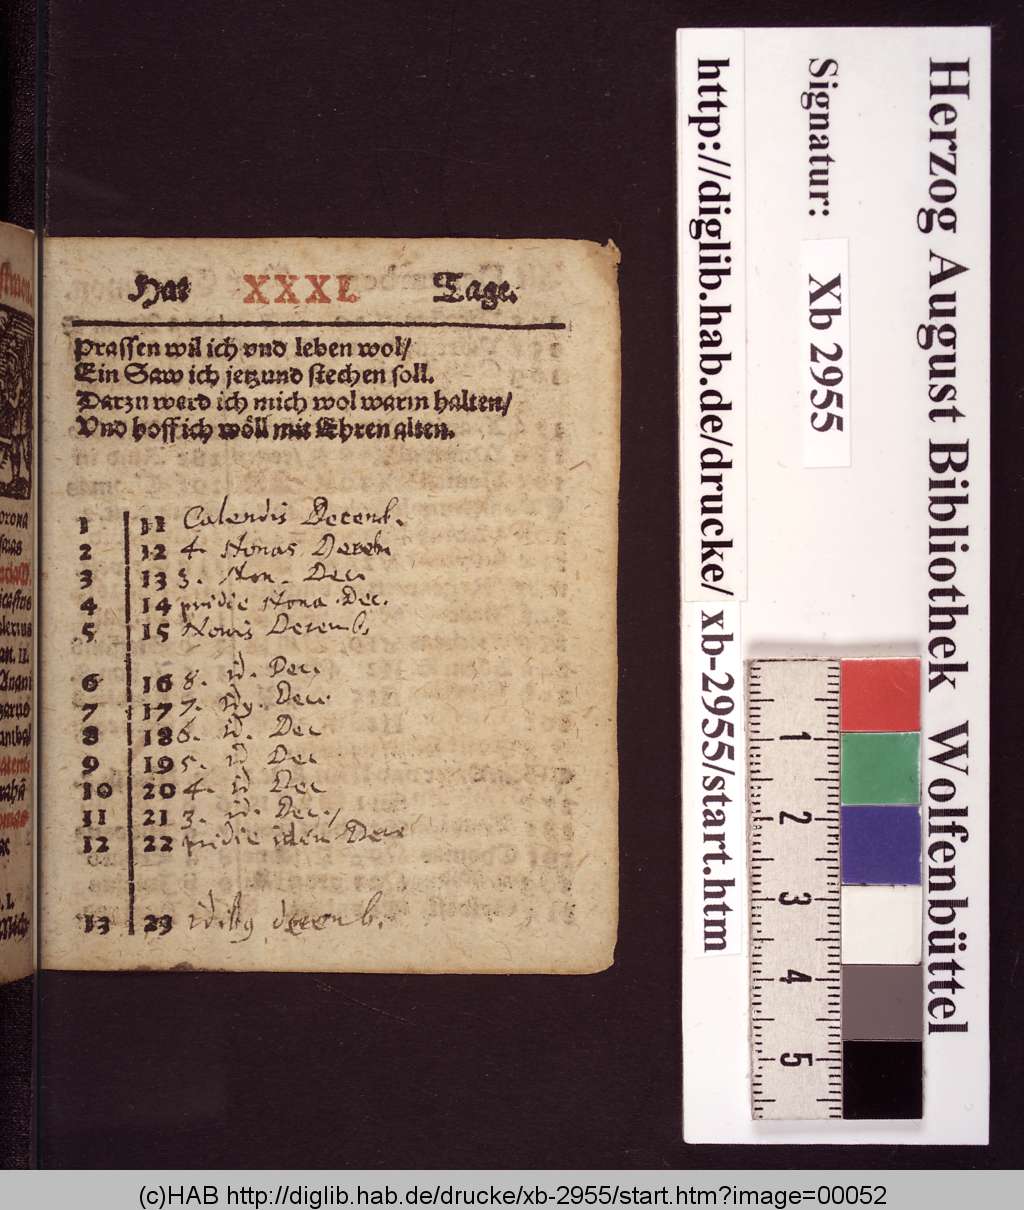 Hat XXXI. Tage.
Prassen wil ich vnd leben wol/
Ein Saw ich jetzund stechen soll.
Darzu werd ich mich wol warm halten/
Vnd hoff ich wöll mit Ehren alten.
1 11 Calendis Decemb.
2 12 4. Nonas Deceb
3 13 3. Non. Dec.
4 14 pridie Nona. Dec.
5 15 Nonis Decemb.
6 16 8. id. Dec.
7 17 7. Dec.
8 18 6. id. Dec
9 19 5. id Dec
10 20 4. id Dec
11 21 3. id. Dec.
12 22 pridie iduu Dece
13 23 idibus decemb.
orona
Anani
zarus
anibal
Herzog August Bibliothek Wolfenbüttel
Signatur: Xb 2955
http://diglib.hab.de/drucke/ xb-2955/start.htm
1 2 3 4 5
(c)HAB http://diglib.hab.de/drucke/xb-2955/start.htm?image=00052